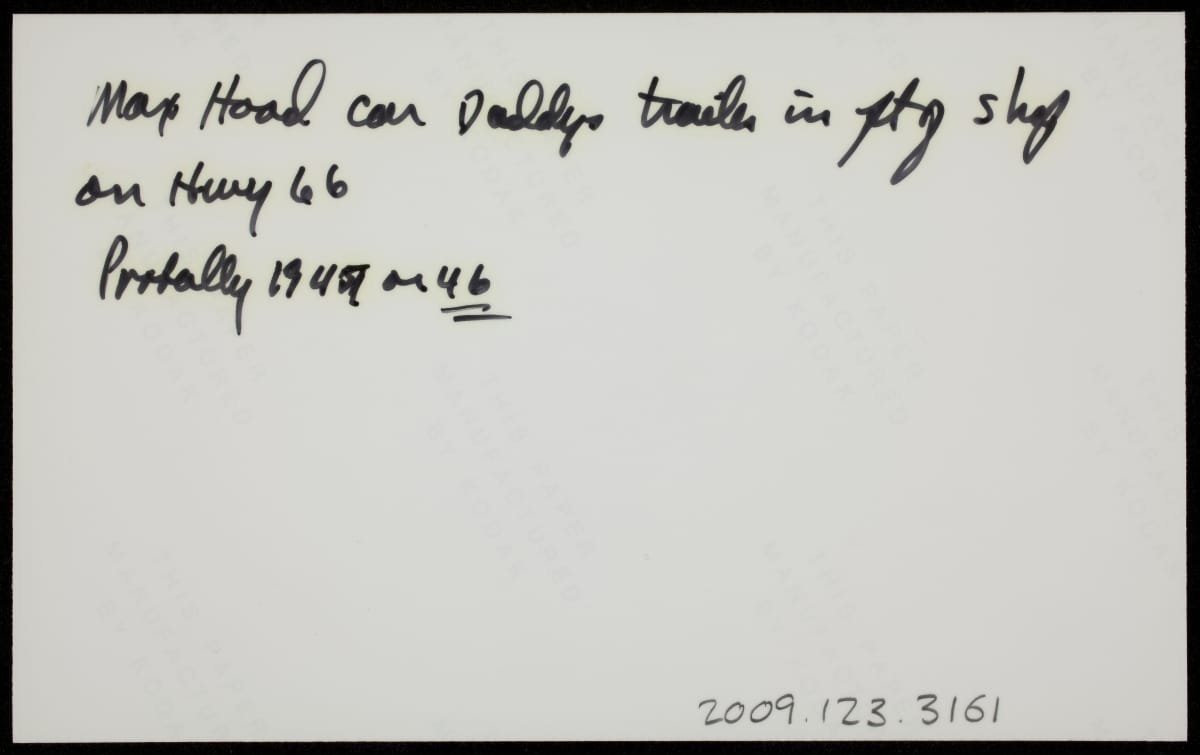 Max Hood car Daddys trailer in ptg shop
on Hwy 66
Probally 1945 or 46
2009.123.3161
THIS PAPER
MANUFACTURED
BY KODAK